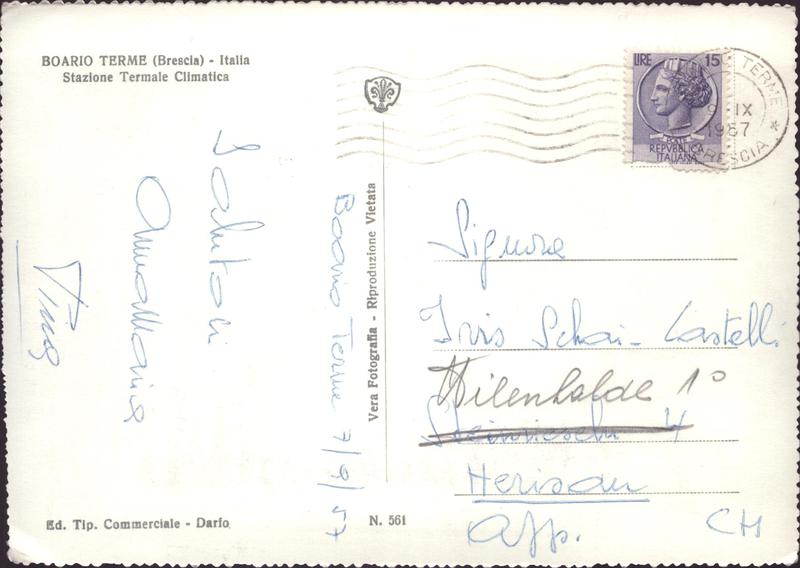 BOARIO TERME (Brescia) - Italia
Stazione Termale Climatica
LIRE 15
REPVBBLICA
ITALIANA
TERME
9 IX
1967
BRESCIA *
Saluti
AnnaMaria
Boario Terme 7/9/67
Vera Fotografia - Riproduzione Vietata
Signora
Iris Schai-Castelli
Wilenhalde 10
4
Herisau
App. CH
Ed. Tip. Commerciale - Darfo
N. 561